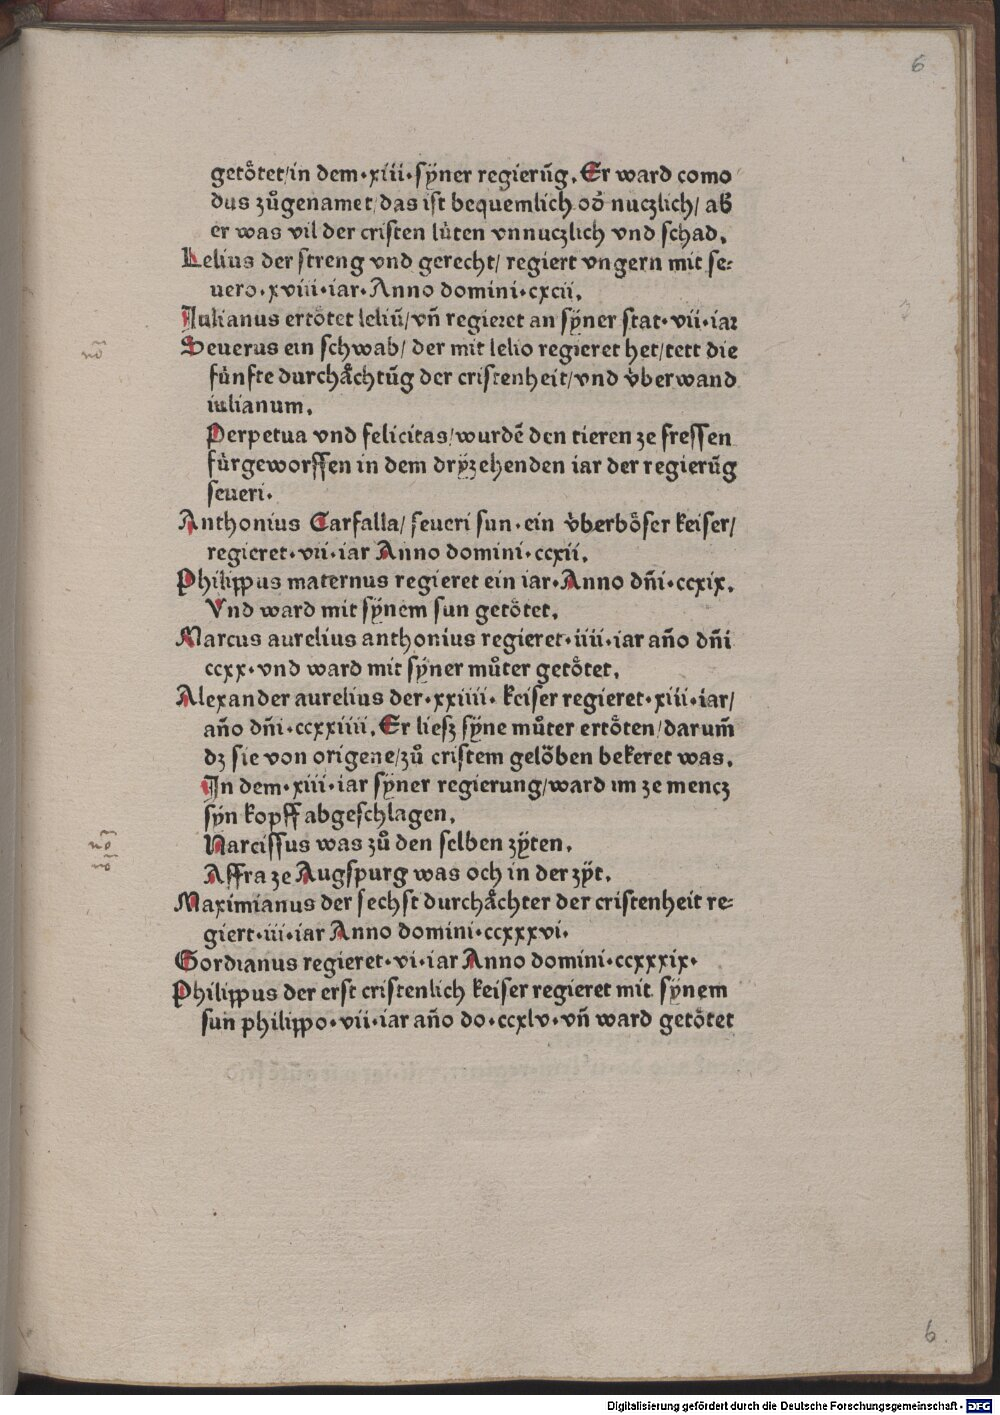 6
getoͤtet/in dem·xiii·sÿner regierūg. Er ward como
dus zuͦgenamet/das ist bequemlich od̄ nuczlich/ ab̄
er was vil der cristen luͤten vnnuczlich vnd schad.
Lelius der streng vnd gerecht/ regiert vngern mit se⸗
uero·xviii·iar·Anno domini·cxcii.
Iulianus ertoͤtet leliū/vn̄ regieret an sÿner stat·vii·iar
Seuerus ein schwab/ der mit lelio regieret het/tett die
fuͤnfte durchaͤchtūg der cristenheit/vnd v̈berwand
iulianum.
Perpetua vnd felicitas/wurdē den tieren ze fressen
fuͤrgeworffen in dem drÿzehenden iar der regierūg
seueri.
Anthonius Carfalla/ seueri sun·ein v̈berboͤser keiser/
regieret·vii·iar Anno domini·ccxii.
Philippus maternus regieret ein iar·Anno dn̄i·ccxix.
Vnd ward mit sÿnem sun getoͤtet.
Marcus aurelius anthonius regieret·iiii·iar an̄o dn̄i
ccxx·vnd ward mit sÿner muͦter getoͤtet.
Alexander aurelius der·xxiiii·keiser regieret·xiii·iar/
an̄o dn̄i·ccxxiiii. Er liesz sÿne muͦter ertoͤten/darum̄
dz sie von origene/zuͦ cristem geloͤben bekeret was.
In dem·xiii·iar sÿner regierung/ward im ze mencz
sÿn kopff abgeschlagen.
Narcissus was zuͦ den selben zÿten.
Affra ze Augspurg was och in der zÿt.
Maximianus der sechst durchaͤchter der cristenheit re⸗
giert·iii·iar Anno domini·ccxxxvi·
Gordianus regieret·vi·iar Anno domini·ccxxxix·
Philippus der erst cristenlich keiser regieret mit sÿnem
sun philippo·vii·iar an̄o do·ccxlv·vn̄ ward getoͤtet
nō
nō
nō
6
Digitalisierung gefördert durch die Deutsche Forschungsgemeinschaft - DFG